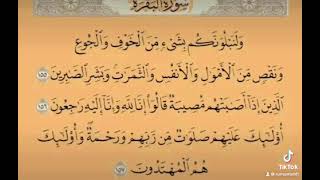 سورة البقرة
وَلَنَبْلُوَنَّكُم بِشَيْءٍ مِّنَ ٱلْخَوْفِ وَٱلْجُوعِ
وَنَقْصٍ مِّنَ ٱلْأَمْوَٰلِ وَٱلْأَنفُسِ وَٱلثَّمَرَٰتِ وَبَشِّرِ ٱلصَّٰبِرِينَ ١٥٥
ٱلَّذِينَ إِذَآ أَصَٰبَتْهُم مُّصِيبَةٌ قَالُوٓا۟ إِنَّا لِلَّهِ وَإِنَّآ إِلَيْهِ رَٰجِعُونَ ١٥٦
أُو۟لَٰٓئِكَ عَلَيْهِمْ صَلَوَٰتٌ مِّن رَّبِّهِمْ وَرَحْمَةٌ وَأُو۟لَٰٓئِكَ
هُمُ ٱلْمُهْتَدُونَ ١٥٧
TikTok